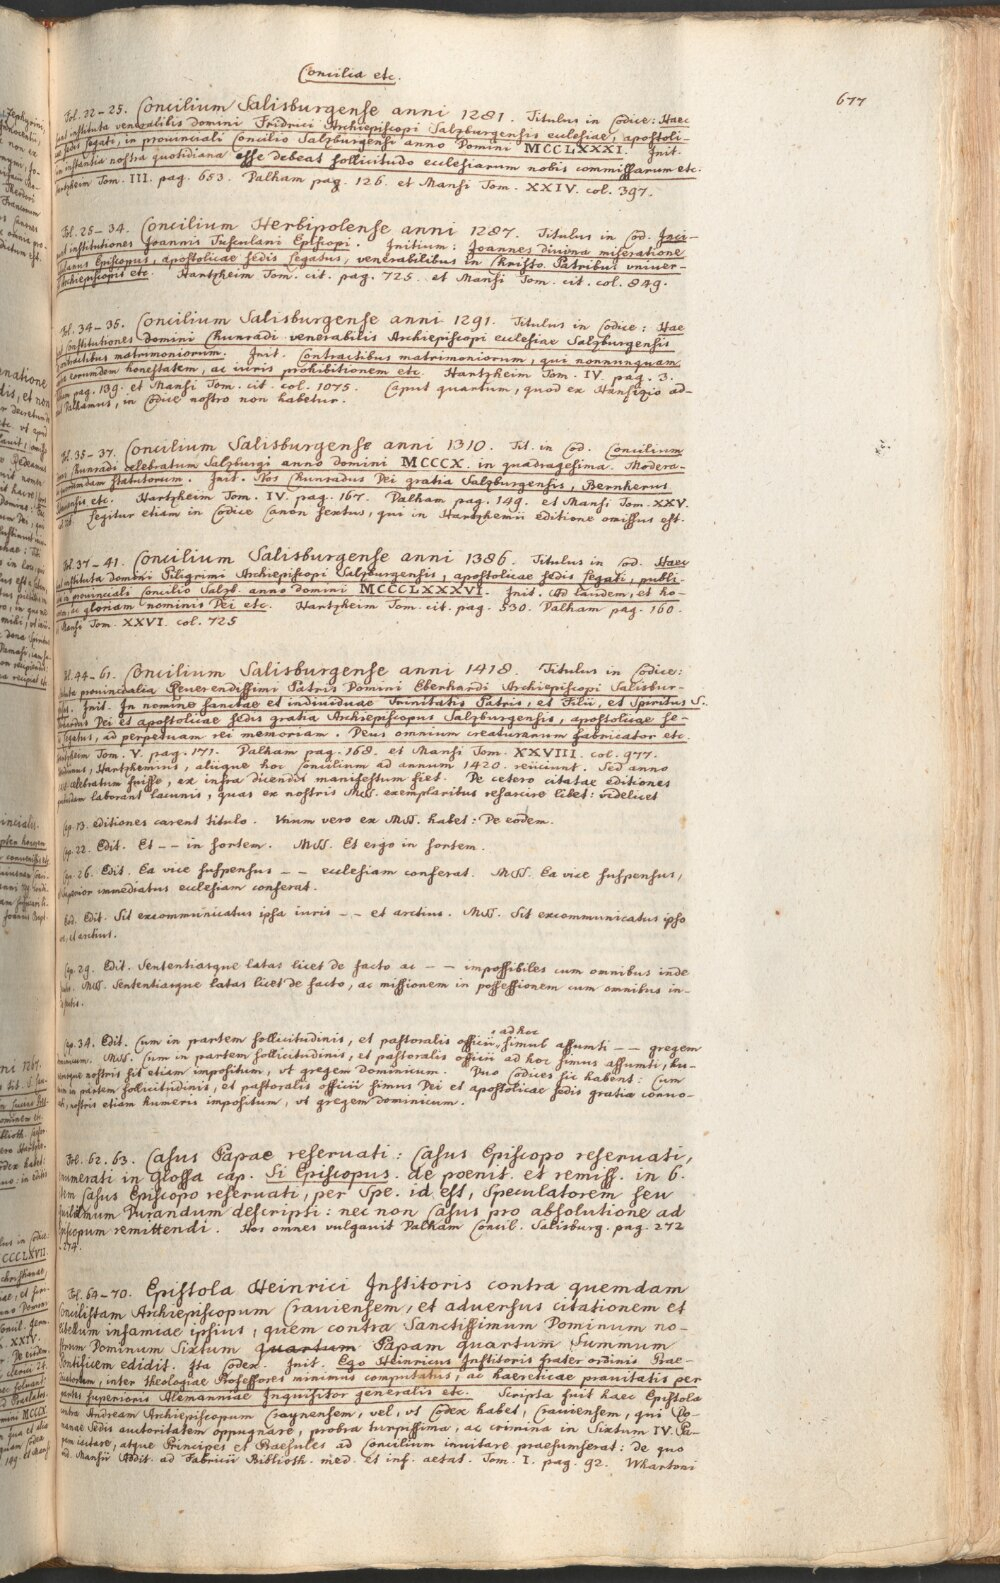 Concilia etc.
677
Fol. 22–25. Concilium Salisburgense anni 1281. Titulus in Codice: Haec
instituta venerabilis domini Fridrici Archiepiscopi Salzburgensis ecclesiae, apostoli-
sedis legati, in prouinciali Concilio Salzburgensi anno Domini MCCLXXXI. Init.
instantia nostra quotidiana esse debeat sollicitudo ecclesiarum nobis commissarum etc.
Hartzheim Tom. III. pag. 653. Dalham pag. 126. et Mansi Tom. XXIV. col. 397.
Fol. 25–34. Concilium Herbipolense anni 1287. Titulus in Cod. Inci-
institutiones Joannis Tusculani Episcopi. Initium: Joannes diuina miseratione
Episcopus, apostolicae sedis legatus, venerabilibus in Christo Patribus vniuer-
Archiepiscopis etc. Hartzheim Tom. cit. pag. 725. et Mansi Tom. cit. col. 849.
Fol. 34–35. Concilium Salisburgense anni 1291. Titulus in Codice: Hae
Constitutiones domini Chunradi venerabilis Archiepiscopi ecclesiae Salzburgensis
contractibus matrimoniorum. Init. Contractibus matrimoniorum, qui nonnunquam
eorumdem honestatem, ac iuris prohibitionem etc. Hartzheim Tom. IV. pag. 3.
pag. 139. et Mansi Tom. cit. col. 1075. Caput quartum, quod ex Hansizio ad-
Dalhamus, in Codice nostro non habetur.
Fol. 35–37. Concilium Salisburgense anni 1310. Tit. in Cod. Concilium
Chunradi celebratum Salzburgi anno domini MCCCX. in quadragesima. Modera-
quorumdam statutorum. Init. Nos Chunradus Dei gratia Salzburgensis, Bernherus
etc. Hartzheim Tom. IV. pag. 167. Dalham pag. 149. et Mansi Tom. XXV.
Legitur etiam in Codice Canon sextus, qui in Hartzhemii editione omissus est.
Fol. 37–41. Concilium Salisburgense anni 1386. Titulus in Cod. Haec
instituta domini Piligrimi Archiepiscopi Salzburgensis, apostolicae sedis legati, publi-
in prouinciali Concilio Salzb. anno domini MCCCLXXXVI. Init. Ad laudem, et ho-
ac gloriam nominis Dei etc. Hartzheim Tom. cit. pag. 530. Dalham pag. 160.
Mansi Tom. XXVI. col. 725
Fol. 44–61. Concilium Salisburgense anni 1418. Titulus in Codice:
prouincialia Reuerendissimi Patris Domini Eberhardi Archiepiscopi Salisbur-
Init. In nomine sanctae et indiuiduae Trinitatis Patris, et Filii, et Spiritus S.
Dei et apostolicae sedis gratia Archiepiscopus Salzburgensis, apostolicae se-
legatus, ad perpetuam rei memoriam. Deus omnium creaturarum fabricator etc.
Hartzheim Tom. V. pag. 171. Dalham pag. 168. et Mansi Tom. XXVIII. col. 977.
Hartzhemius, aliique hoc Concilium ad annum 1420. reiiciunt. Sed anno
celebratum fuisse, ex infra dicendis manifestum fiet. De cetero citatae editiones
laborant lacunis, quas ex nostris Mss. exemplaribus resarcire libet: videlicet
Cap. 13. editiones carent titulo. Vnum vero ex Mss. habet: De eodem.
Cap. 22. Edit. Et – – in sortem. Mss. Et ergo in sortem.
Cap. 26. Edit. Ea vice suspensus – – ecclesiam conferat. Mss. Ea vice suspensus,
superior immediatus ecclesiam conferat.
Eod. Edit. Sit excommunicatus ipsa iuris – – et arctius. Mss. Sit excommunicatus ipso
et arctius.
Cap. 29. Edit. Sententiasque latas licet de facto ac – – impossibiles cum omnibus inde
Mss. Sententiasque latas licet de facto, ac missionem in possessionem cum omnibus in-
Cap. 34. Edit. Cum in partem sollicitudinis, et pastoralis officii, ad hoc simul assumti – – gregem
dominicum. Mss. Cum in partem sollicitudinis, et pastoralis officii ad hoc simus assumti, hu-
nostris sit etiam impositum, vt gregem dominicum. Duo Codices sic habent: Cum
in partem sollicitudinis, et pastoralis officii simus Dei et apostolicae sedis gratia conuo-
nostris etiam humeris impositum, vt gregem dominicum.
Fol. 62. 63. Casus Papae reseruati: Casus Episcopo reseruati,
numerati in Glossa cap. Si Episcopus. de poenit. et remiss. in 6.
Casus Episcopo reseruati, per Spe. id est, Speculatorem seu
Durandum descripti: nec non Casus pro absolutione ad
Episcopum remittendi. Hos omnes vulgauit Dalham Concil. Salisburg. pag. 272
274.
Fol. 64–70. Epistola Heinrici Institoris contra quemdam
Concilistam Archiepiscopum Crauiensem, et aduersus citationem et
libellum infamiae ipsius, quem contra Sanctissimum Dominum no-
strum Dominum Sixtum quartum Papam quartum Summum
Pontificem edidit. Ita Codex. Init. Ego Heinricus Institoris frater ordinis Prae-
dicatorum, inter theologiae Professores minimus computatus, ac haereticae prauitatis per
partes superioris Alemanniae Inquisitor generalis etc. Scripta fuit haec Epistola
contra Andream Archiepiscopum Craynensem, vel, vt Codex habet, Crauiensem, qui Ro-
manae Sedis auctoritatem oppugnare, probra turpissima, ac crimina in Sixtum IV. Pa-
pam iactare, atque Principes et Praesules ad Concilium inuitare praesumserat: de quo
vid. Mansii Addit. ad Fabricii Biblioth. med. et inf. aetat. Tom. I. pag. 92. Whartoni